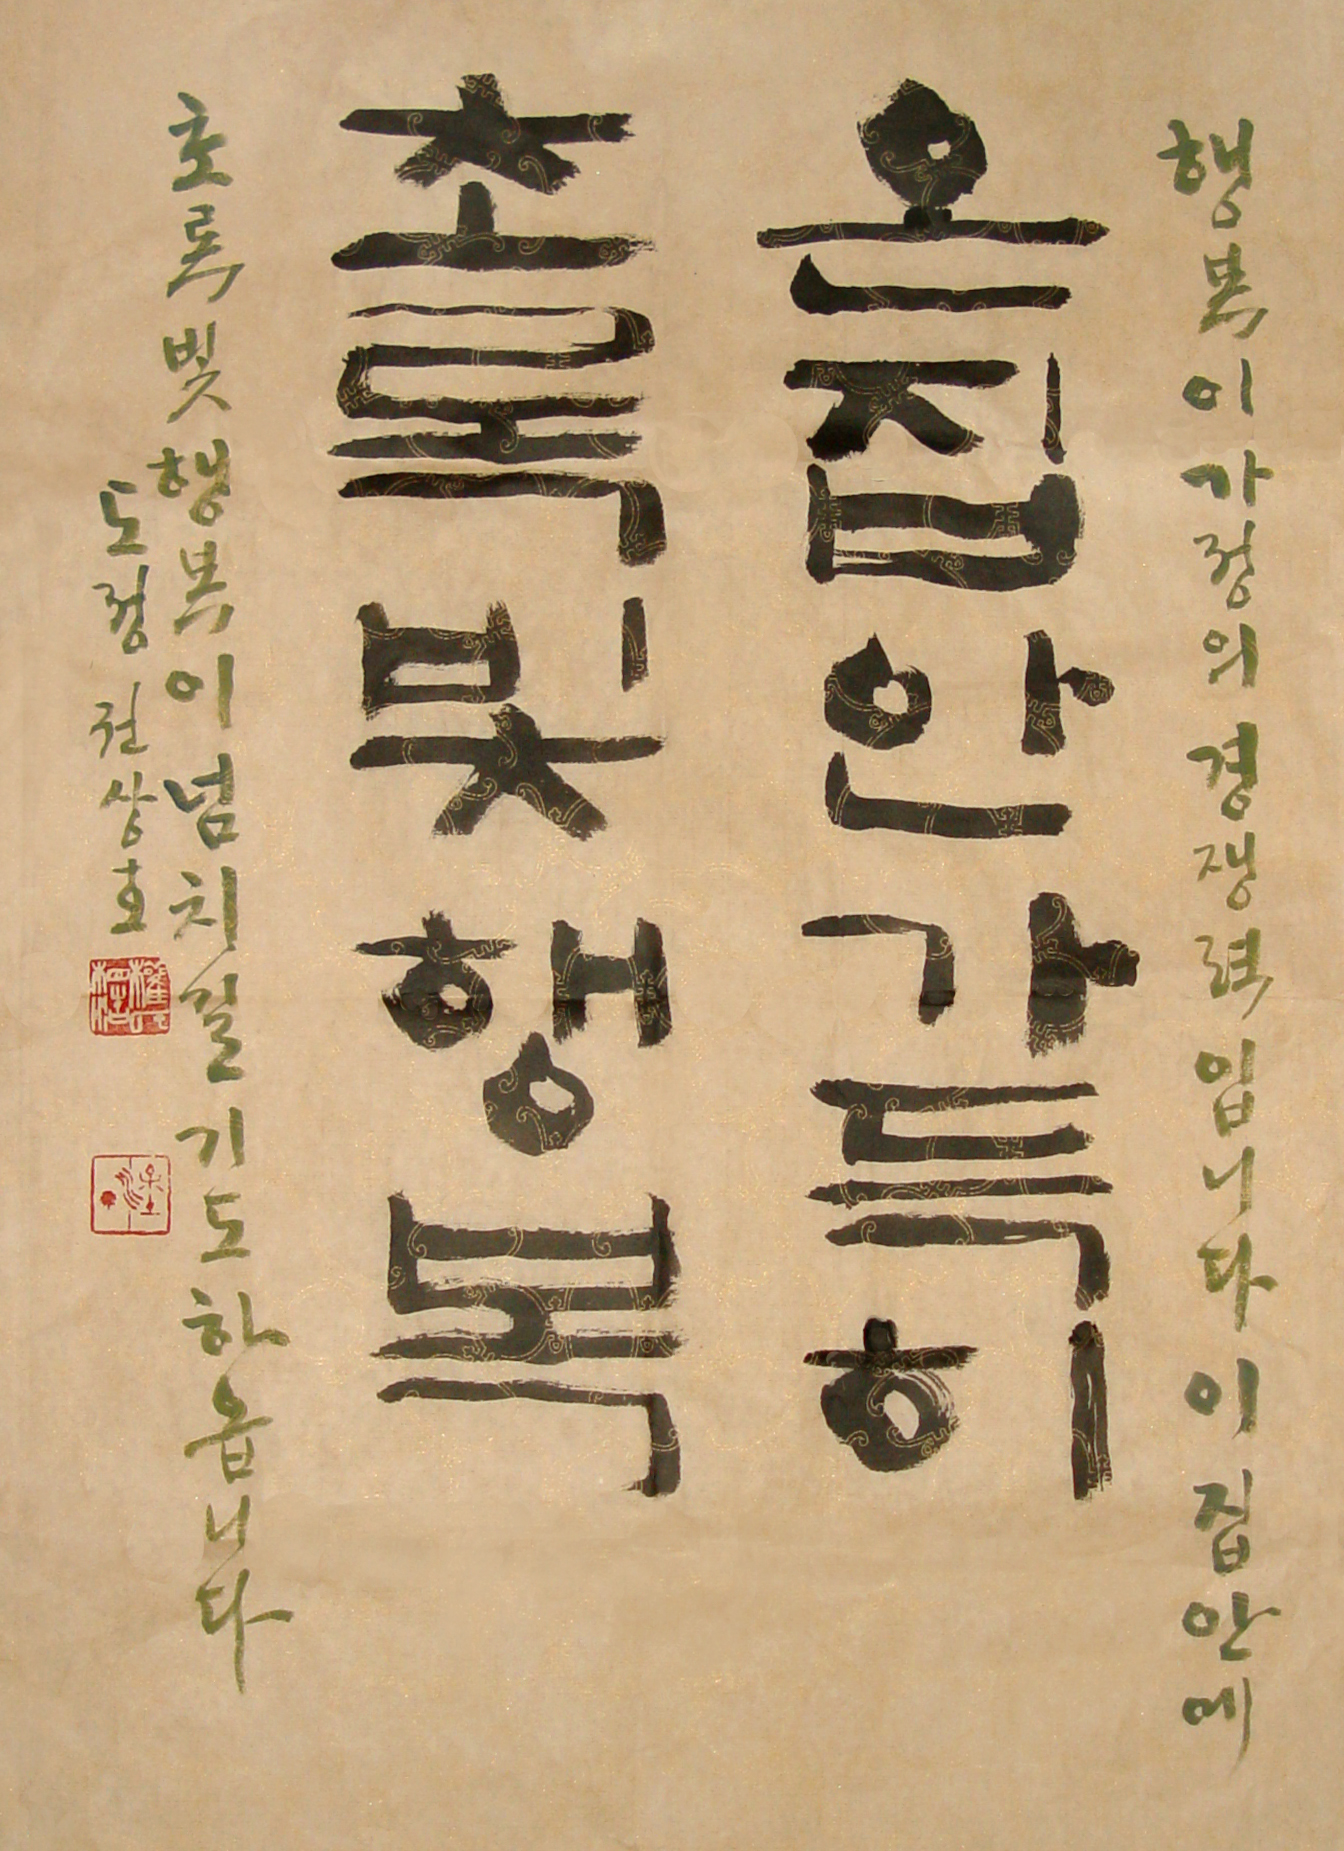 행복이 가정의 경쟁력입니다 이 집안에
온 집안 가득히
초록빛 행복
초록빛 행복이 넘치길 기도하옵니다
도정 권상호